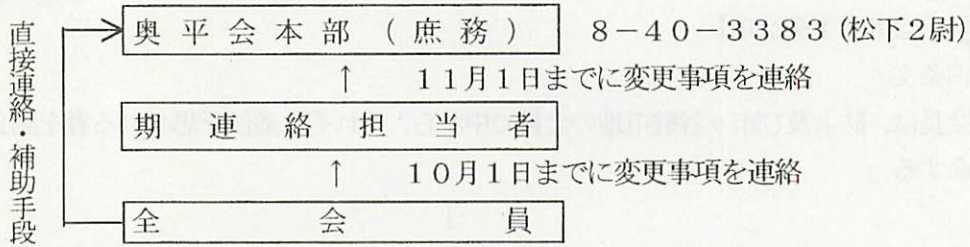 直接連絡・補助手段
奥平会本部（庶務） 8－40－3383 (松下2尉)
↑ 11月1日までに変更事項を連絡
期連絡担当者
↑ 10月1日までに変更事項を連絡
全会員